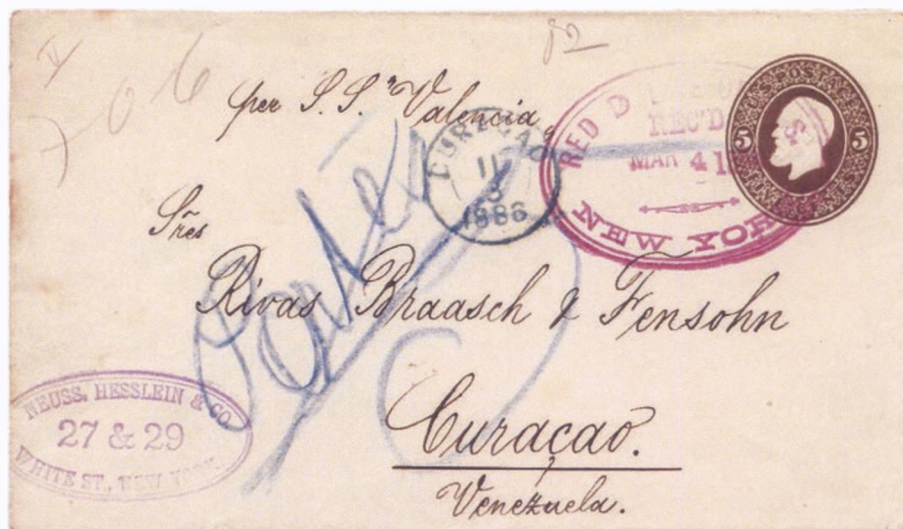 82
706
per S.S. "Valencia"
CURAÇAO
11
3
1886
RED D
REC'D
MAR 4 1
NEW YORK
U.S. POSTAGE
5 5
Sres
Rivas Braasch & Fensohn
Curaçao.
Venezuela.
NEUSS, HESSLEIN & CO
27 & 29
WHITE ST., NEW YORK.